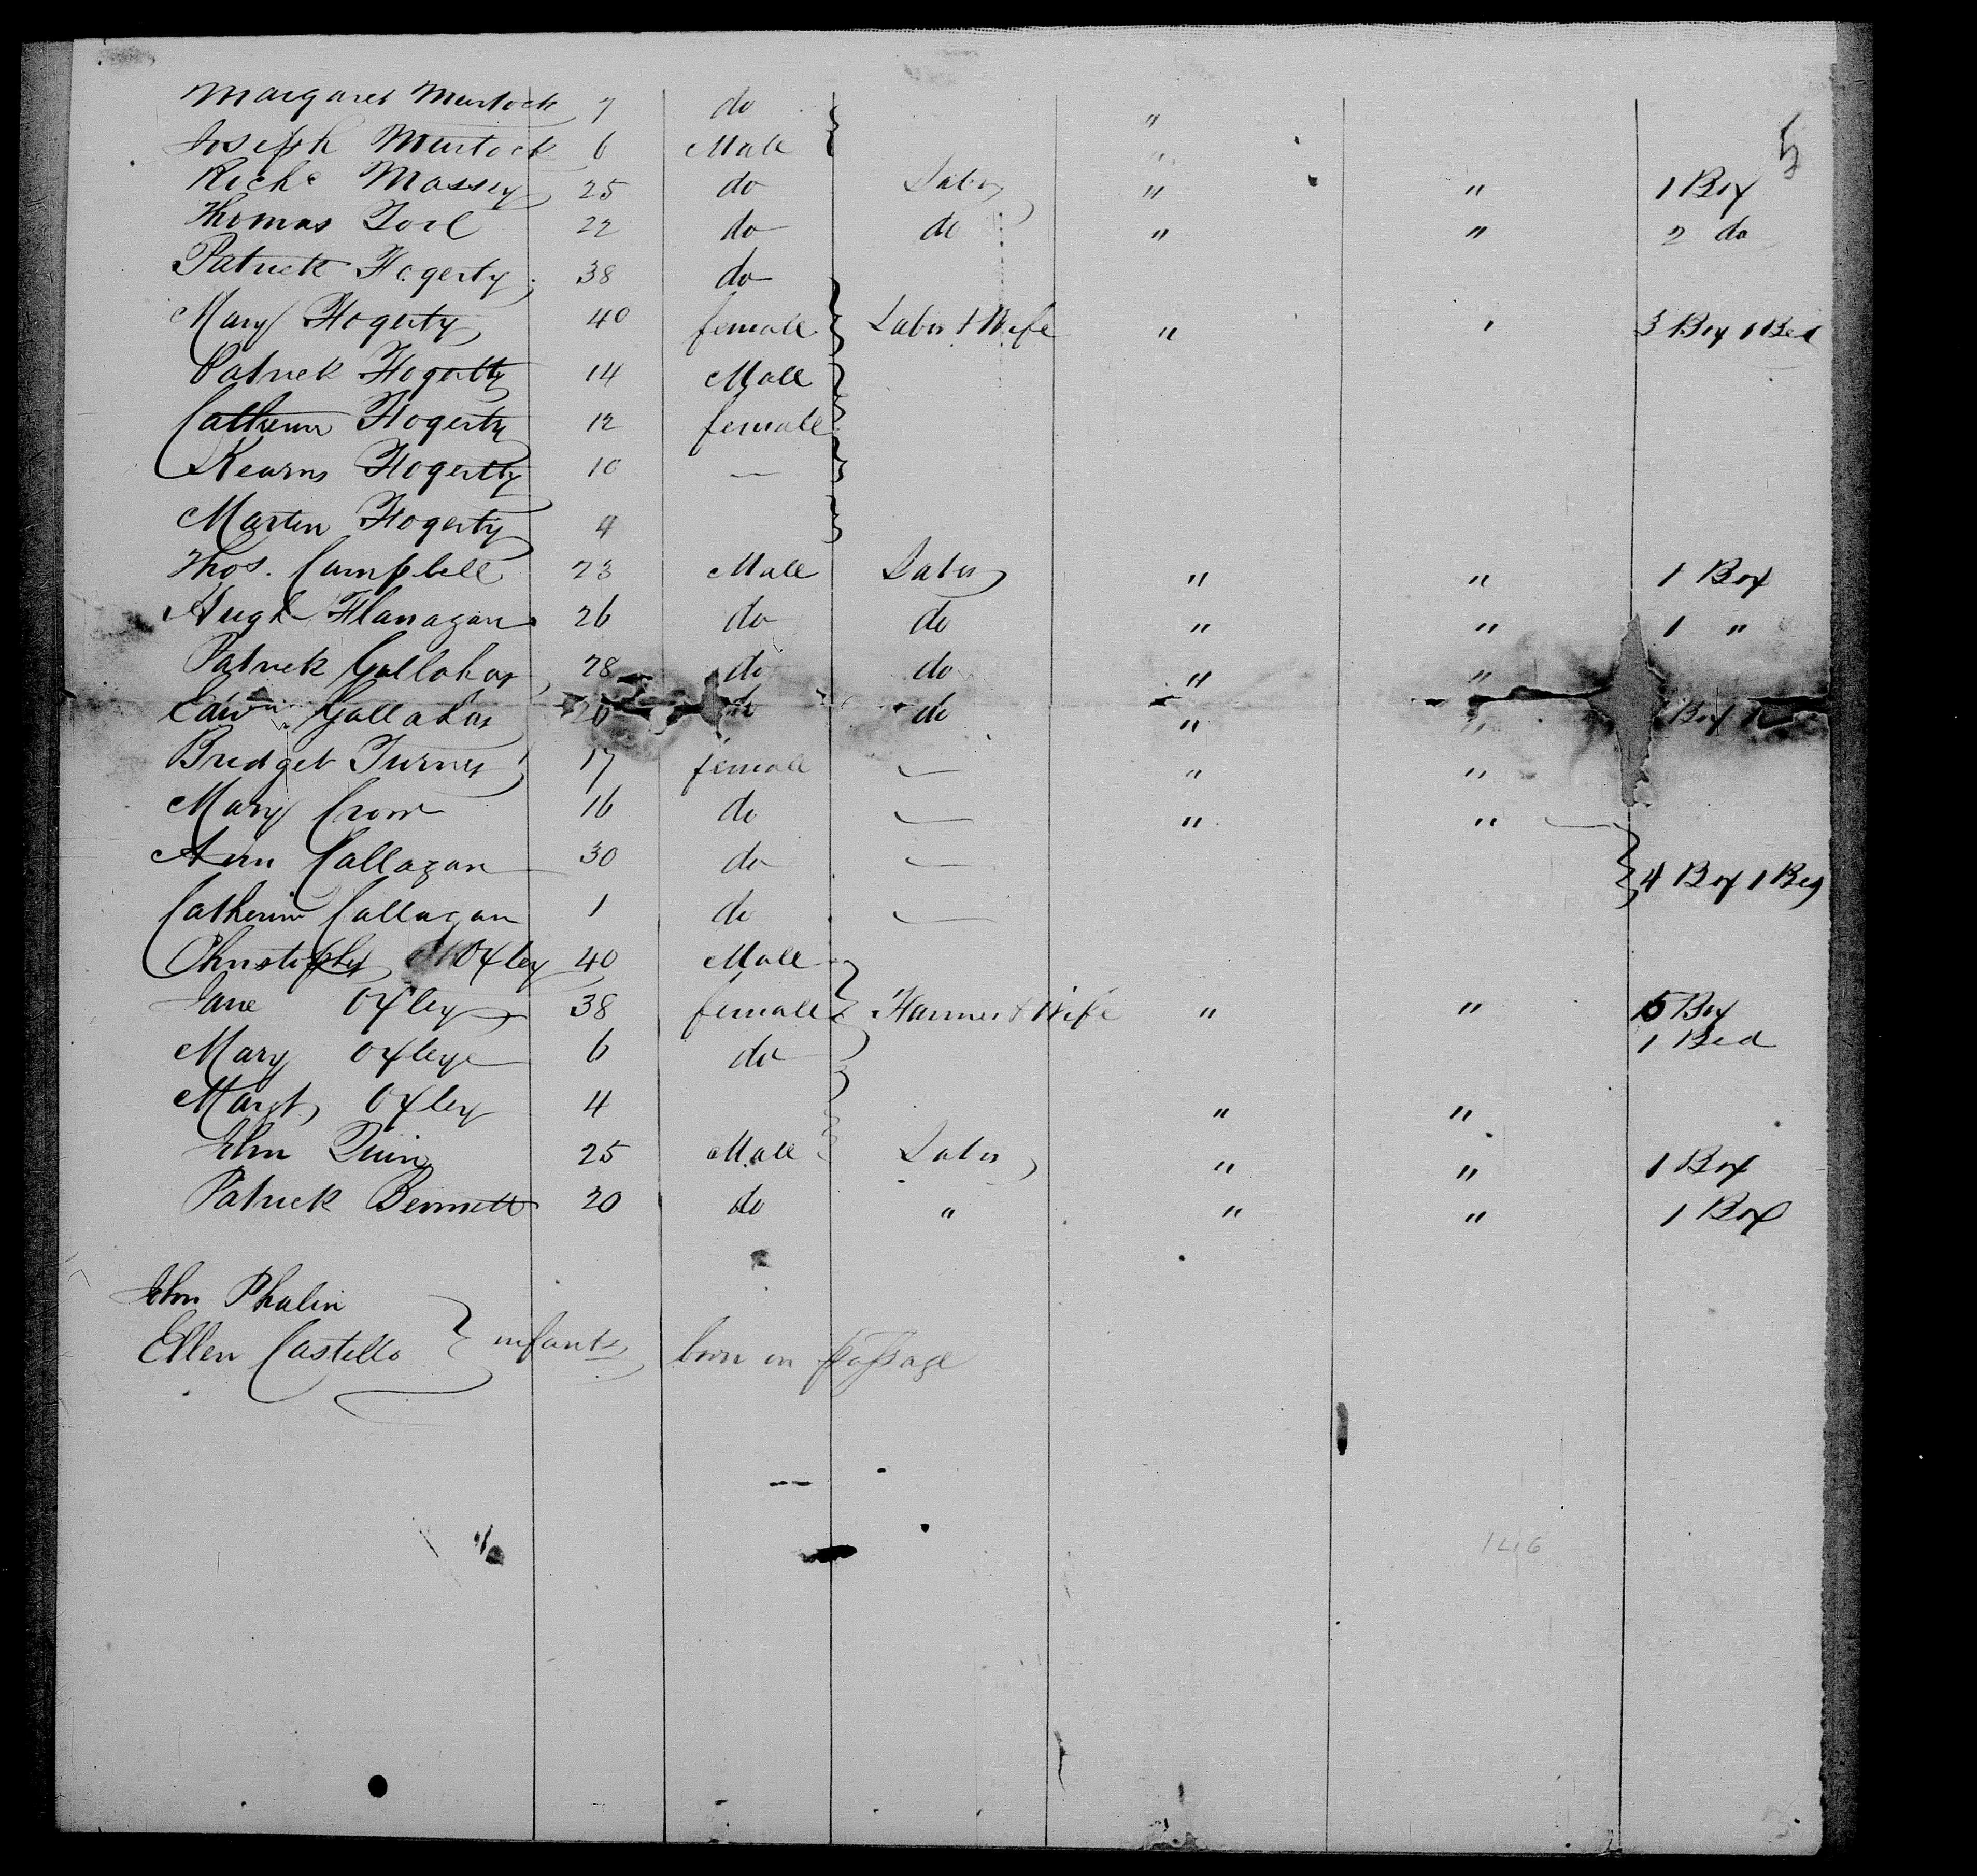 Margaret Murtock 7 do "
Joseph Murtock 6 Male " 5
Richd Massey 25 do Labor " " 1 Box
Thomas Tool 22 do do " " 2 do
Patrick Fogerty 38 do
Mary Fogerty 40 female Labor & Wife " " 3 Box 1 Bed
Patrick Fogerty 14 Male
Catherin Fogerty 12 female
Kearns Fogerty 10 —
Martin Fogerty 4
Thos. Campbell 23 Male Labor " " 1 Box
Hugh Flanagan 26 do do " " 1 "
Patrick Gallahar 28 do do " "
Edwd Gallahar 20 do do " " Box 1
Bridget Turner 17 female — " "
Mary Crow 16 do — " " —
Ann Callagan 30 do — 4 Box 1 Beg
Catherin Callagan 1 do —
Christopher Oxley 40 Male
Jane Oxley 38 female Farmer & Wife " " 5 Box
Mary Oxleye 6 do 1 Bed
Margt Oxley 4 " "
John Quin 25 Male Labor " " 1 Box
Patrick Bennett 20 do " " " 1 Box
John Phalin
Ellen Castello } infants born on passage
146